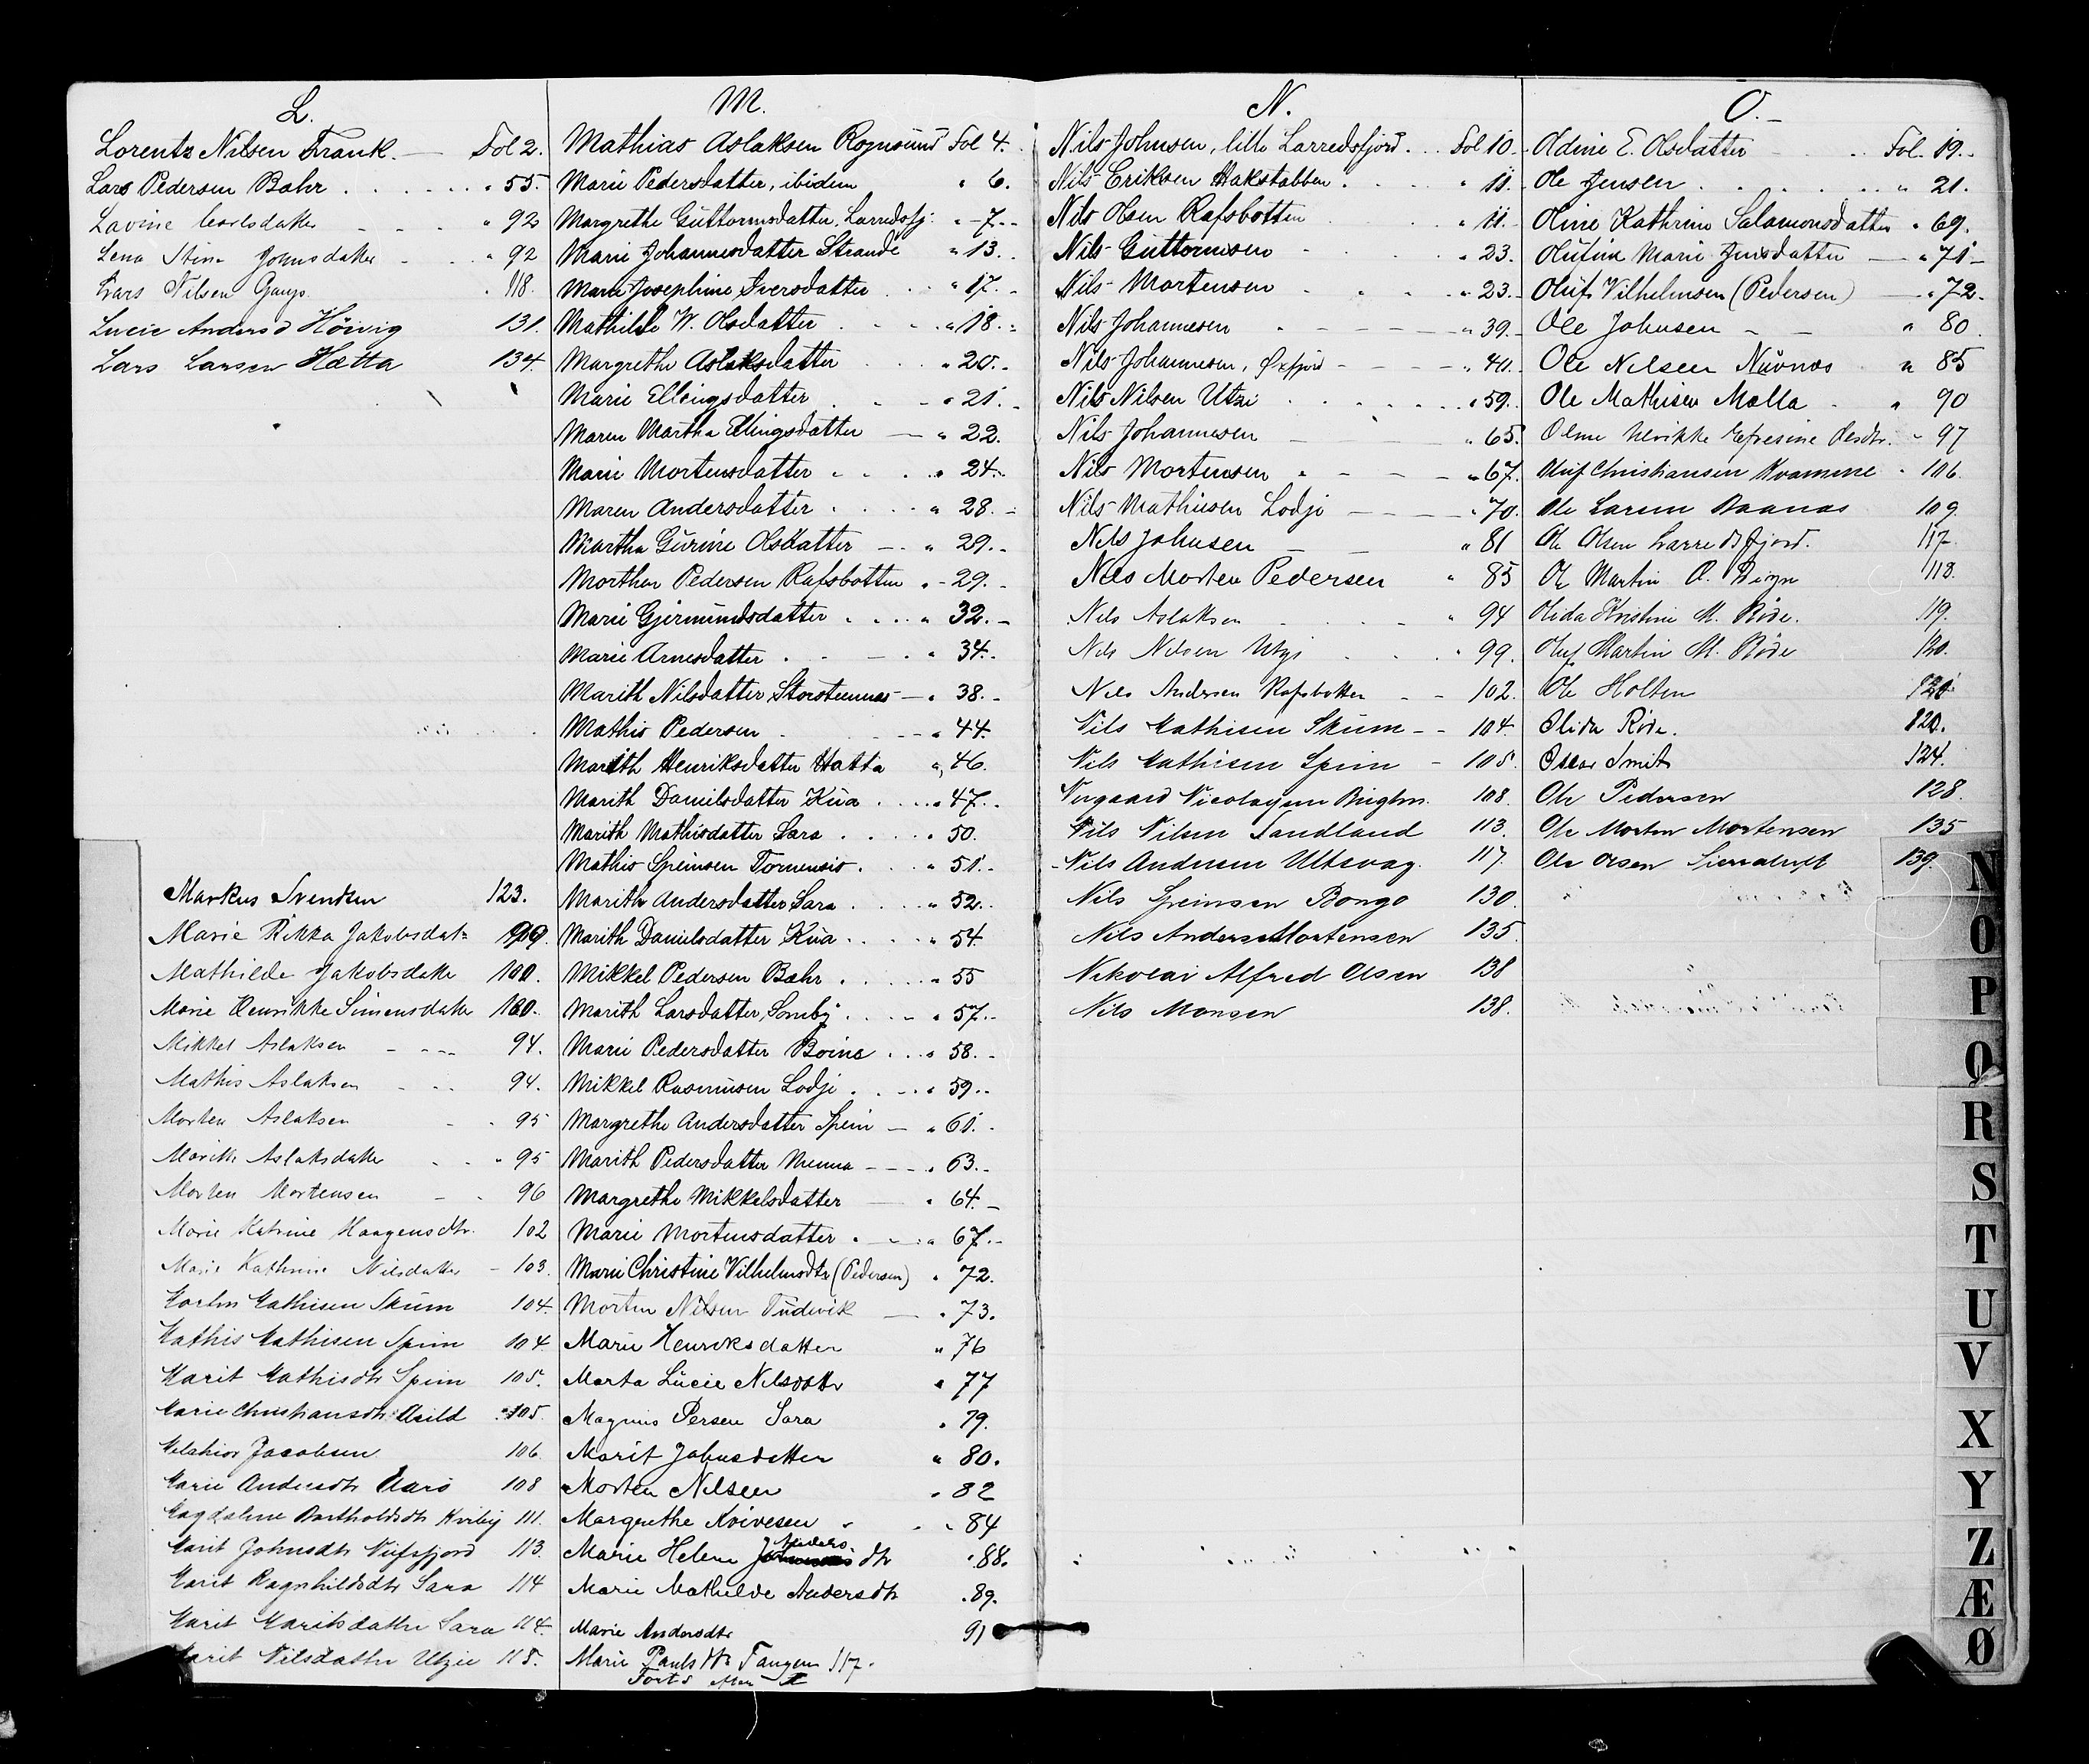 L.
Lorentz Nilsen Frank. Fol 2.
Lars Pedersen Bahr " 55.
Lavine Carlsdatter " 92
Lena Stina Johnsdatter " 92
Lars Nilsen Gaup. " 118.
Lucie Andersd Höivig 131.
Lars Larsen Hætta 134.
Markus Svendsen 123.
Marie Rikka Jakobsdatr
Mathilde Jakobsdatter 100.
Marie Henrikke Simensdatter 100.
Mikkel Aslaksen 94.
Mathis Aslaksen 94.
Morten Aslaksen 95
Marith Aslaksdatter " 95
Morten Mortensen 96
Marie Katrine Haagensdtr. 102
Marie Kathrine Nilsdatter 103.
Morten Mathisen Skum 104.
Mathis Mathisen Spein 104
Marit Mathisdtr Spein 105.
Marie Christiansdtr Asild 105.
Melchior Jacobsen 106
Marie Andersdtr Aarö 108
Magdalene Bartholdsdtr Kviby 111.
Marit Johnsdtr Nufsfjord 113.
Marit Ragnhildsdtr Sara 114
Marit Maritsdatter Sara 114.
Marit Nilsdatter Utzie 115.
M.
Mathias Aslaksen Rognsund Fol 4.
Marie Pedersdatter, ibidem " 6.
Margrethe Guttormsdatter, Larredsfj: " 7.
Marie Johannesdatter Strande " 13.
Marie Josephine Iversdatter " 17.
Mathilde W. Olsdatter " 18.
Margrethe Aslaksdatter " 20.
Marie Ellingsdatter " 21.
Maren Martha Ellingsdatter " 22.
Marie Mortensdatter " 24.
Maren Andersdatter " 28.
Martha Gurine Olsdatter " 29.
Morthen Pedersen Rafsbotten " 29.
Marie Gjermundsdatter " 32.
Marie Arnesdatter " 34.
Marith Nilsdatter, Storsteennæs " 38.
Mathis Pedersen " 44.
Marith Henriksdatter Hætta " 46.
Marith Danielsdatter Kua " 47.
Marith Mathisdatter Sara " 50.
Mathis Speinsen Tornensis " 51.
Marith Andersdatter Sara " 52.
Marith Danielsdatter Kua " 54.
Mikkel Pedersen Bæhr " 55
Marith Larsdatter, Somby " 57.
Marie Pedersdatter Boine " 58.
Mikkel Rasmusen Lodje " 59.
Margrethe Andersdatter Spein " 61.
Marith Pedersdatter Nunna " 63.
Margrethe Mikkelsdatter " 64.
Marie Mortensdatter " 67.
Marie Christine Vilhelmsdtr (Pedersen) " 72.
Morten Nilsen Tudevik " 73.
Marie Henriksdatter " 76
Marta Lucie Nilsdatter " 77
Magnus Persen Sara " 79.
Marit Johnsdatter " 80.
Morten Nilsen " 82
Margrethe Kvivesen " 84
Marie Helene Anders dtr " 88.
Marie Mathilde Andersdtr " 89.
Marie Andersdtr 91
Marie Paulsdtr Tangen 117.
Forts efter
N.
Nils Johnsen, lille Larredsfjord. Fol 10.
Nils Eriksen Hakstabben " 11.
Nils Olsen Rafsbotten " 11.
Nils Guttormsen " 23.
Nils Mortensen " 23.
Nils Johannesen " 39.
Nils Johannesen, Øxfjord " 40.
Nils Nilsen Utzi " 59.
Nils Johannesen " 65.
Nils Mortensen " 67.
Nils Mathiesen Lodje " 70.
Nils Johnsen " 81
Nils Morten Pedersen " 85
Nils Aslaksen " 94
Nils Nilsen Utzi " 99.
Nils Andersen Rafsbotten 102.
Nils Mathisen Skum 104.
Nils Mathisen Spein 105.
Nergaard Nicolaysen 108.
Nils Nilsen Sandland 113.
Nils Andersen Ultsvag. 117.
Nils Speinsen Bongo 130.
Nils Anders Mortensen 135.
Nikolai Alfred Olsen 138
Nils Monsen 138.
O.
Odine E. Olsdatter Fol. 19.
Ole Jensen " 21.
Oline Kathrine Salamonsdatter " 69.
Olufine Marie Jensdatter " 71
Oluf Vilhelmsen (Pedersen) " 72.
Ole Johnsen " 80.
Ole Nilsen Nuvnæs " 85
Ole Mathisen Malla " 90
Oline Ulrikke Efresine Olesdtr. " 97
Oluf Christiansen Kvamme " 106.
Ole Larsen Baanæs 109.
Ole Olsen Larredsfjord. 117.
Ole Martin O. 118.
Olida Kristine M. Röde. 119.
Oluf Martin M. Röde 120.
Ole Holten
Olida Röde.
Oscar Smith 124.
Ole Pedersen 128.
Ole Morten Mortensen 135
Ole Olsen 139.
N
O
P
Q
R
S
T
U
V
X
Y
Z
Æ
Ø